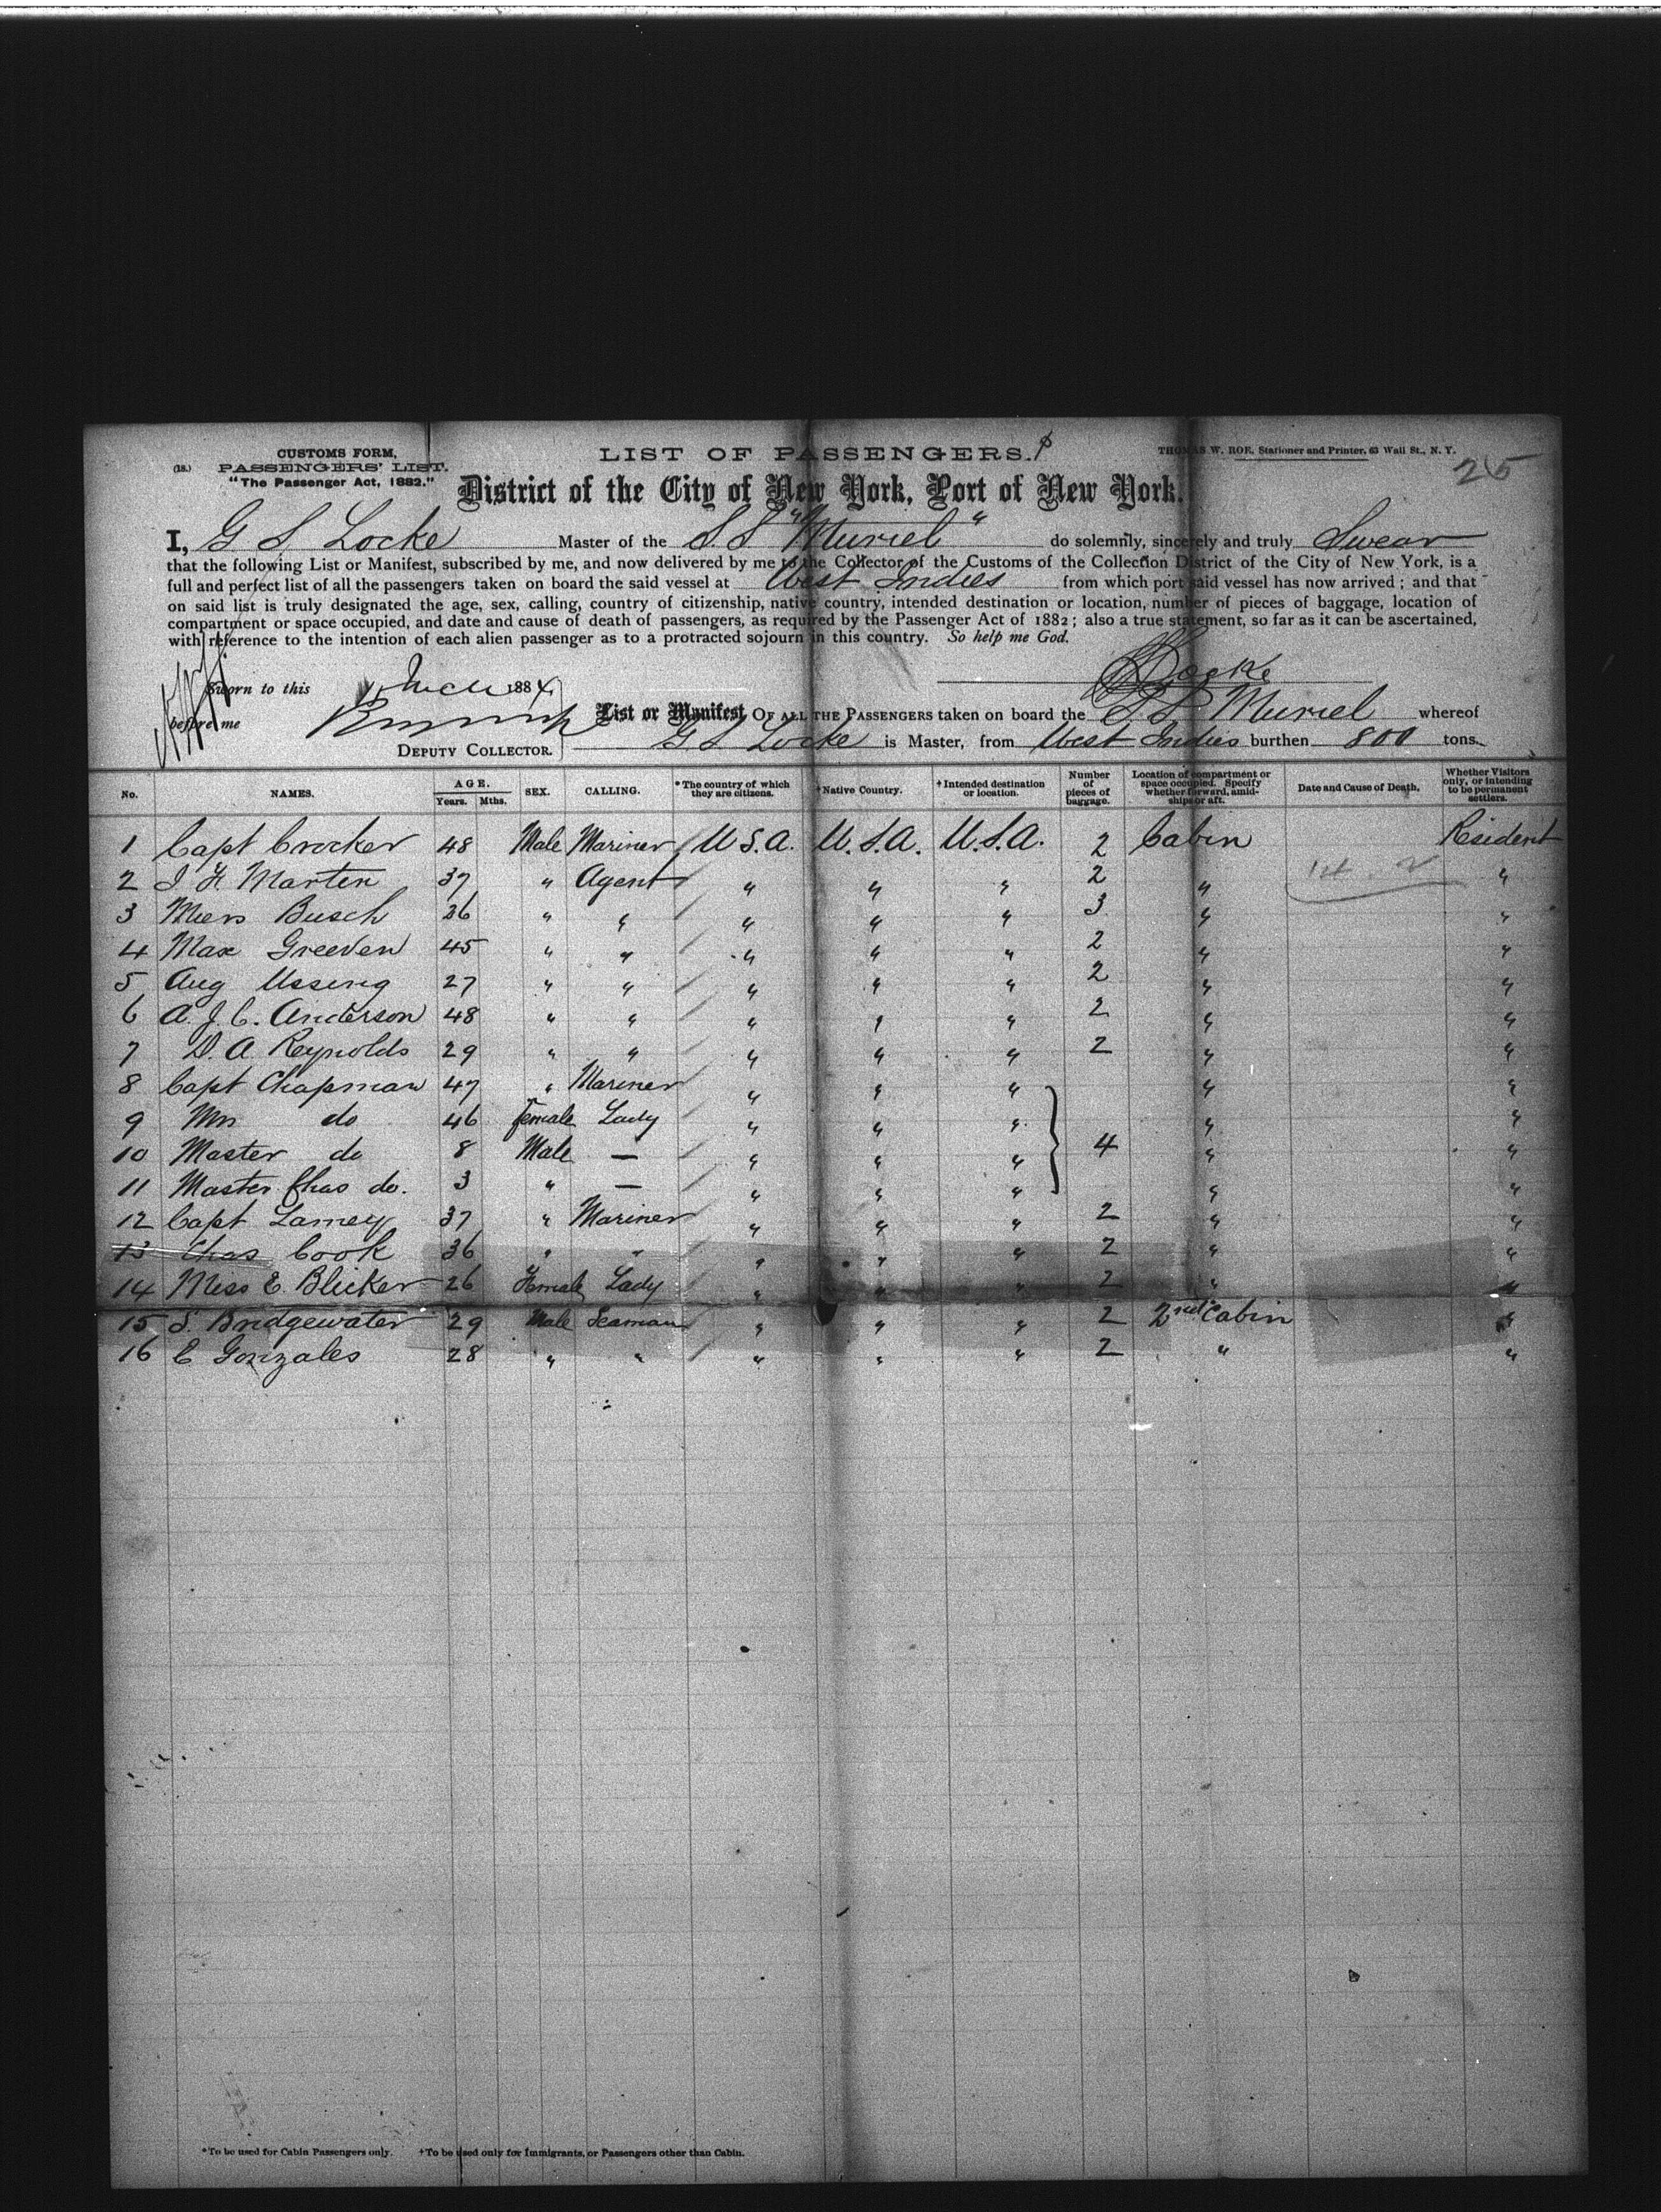 CUSTOMS FORM,
(18.) PASSENGERS' LIST.
"The Passenger Act, 1882."
LIST OF PASSENGERS.
THOMAS W. ROE, Stationer and Printer, 63 Wall St., N. Y.
District of the City of New York, Port of New York.
I, G S Locke Master of the S.S "Muriel" do solemnly, sincerely and truly Swear
that the following List or Manifest, subscribed by me, and now delivered by me to the Collector of the Customs of the Collection District of the City of New York, is a
full and perfect list of all the passengers taken on board the said vessel at West Indies from which port said vessel has now arrived; and that
on said list is truly designated the age, sex, calling, country of citizenship, native country, intended destination or location, number of pieces of baggage, location of
compartment or space occupied, and date and cause of death of passengers, as required by the Passenger Act of 1882; also a true statement, so far as it can be ascertained,
with reference to the intention of each alien passenger as to a protracted sojourn in this country. So help me God.
Locke
Sworn to this 1884
before me
DEPUTY COLLECTOR.
List or Manifest OF ALL THE PASSENGERS taken on board the S.S. Muriel whereof
G S Locke is Master, from West Indies burthen 800 tons.
No. NAMES. AGE. Years. Mths. SEX. CALLING. *The country of which they are citizens. †Native Country. †Intended destination or location. Number of pieces of baggage. Location of compartment or space occupied. Specify whether forward, amidships or aft. Date and Cause of Death. Whether Visitors only, or intending to be permanent settlers.
1 Capt Crocker 48 Male Mariner U.S.A. U.S.A. U.S.A. 2 Cabin Resident
2 J. H. Marten 37 " Agent " " " 2 " "
3 Busch 36 " " " " " 3 " "
4 Max Greeven 45 " " " " " 2 " "
5 Aug Ussing 27 " " " " " 2 " "
6 A. J. C. Anderson 48 " " " " " 2 " "
7 D. A. Reynolds 29 " " " " " 2 " "
8 Capt Chapman 47 " Mariner " " " " "
9 Mrs do 46 Female Lady " " " " "
10 Master do 8 Male — " " " 4 " "
11 Master Chas do. 3 " — " " " " "
12 Capt Lamey 37 " Mariner " " " 2 " "
13 Chas Cook 36 " " " " " 2 " "
14 Miss E. Blicker 26 Female Lady " " " 2 " "
15 S. Bridgewater 29 Male Seaman " " " 2 2nd Cabin "
16 C Gonzales 28 " " " " " 2 " "
*To be used for Cabin Passengers only. †To be used only for Immigrants, or Passengers other than Cabin.